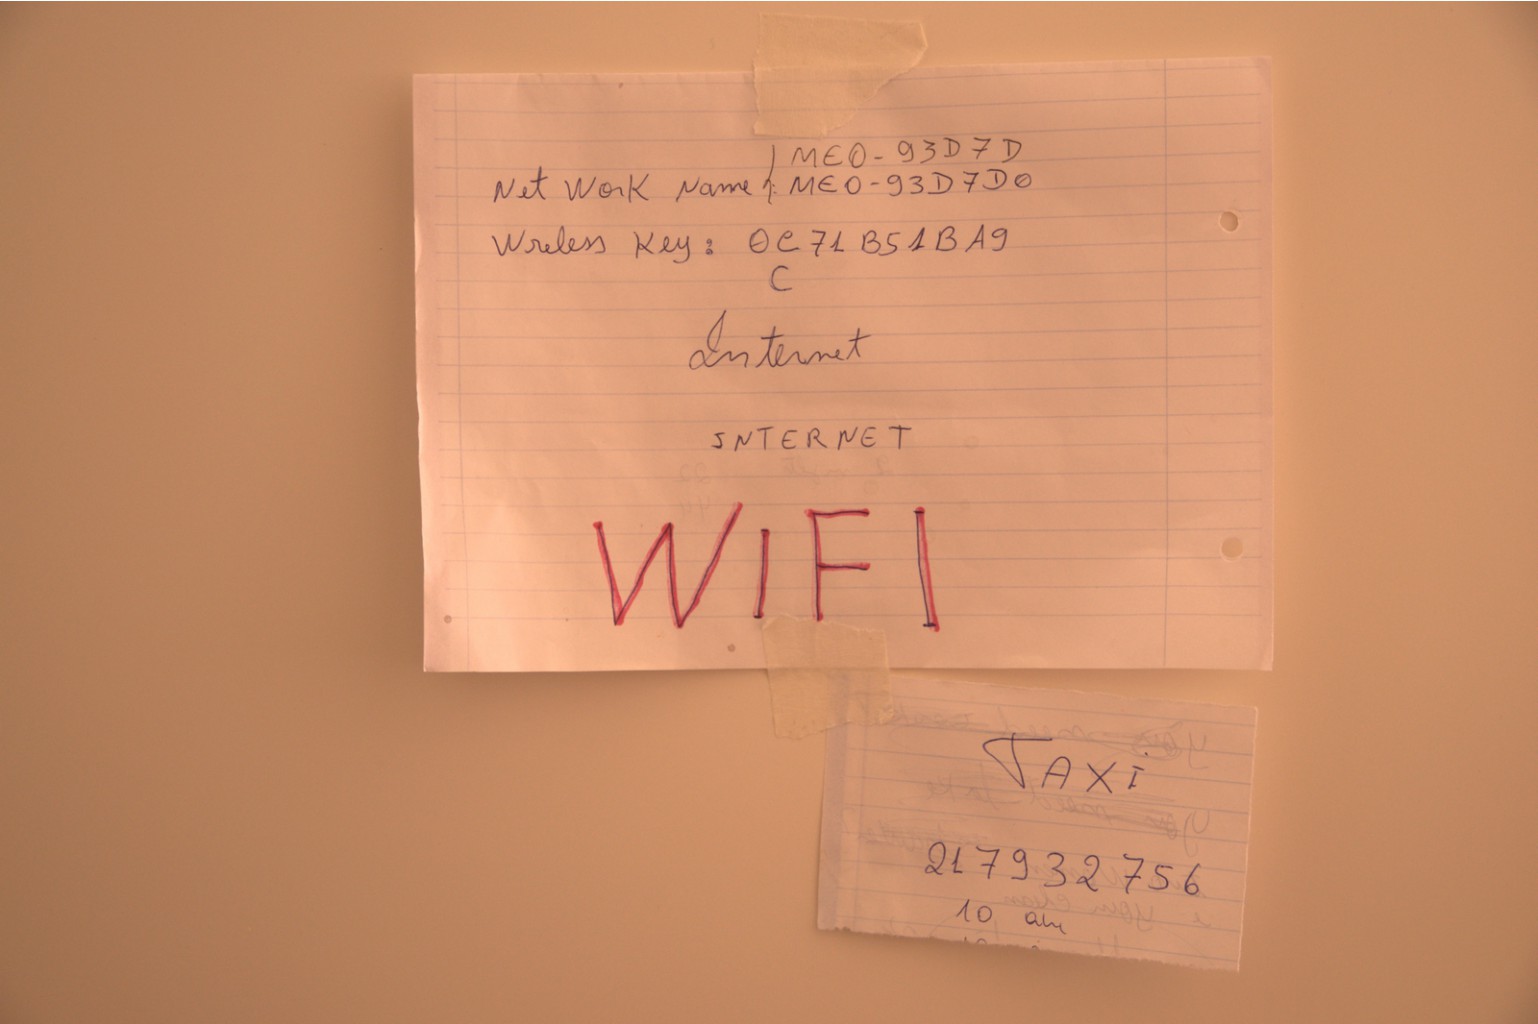 MEO-93D7D
Net Work Name: MEO-93D7D0
Wreless Key: 0C71B51BA9
C
Internet
INTERNET
WiFI
TAXi
217932756
10